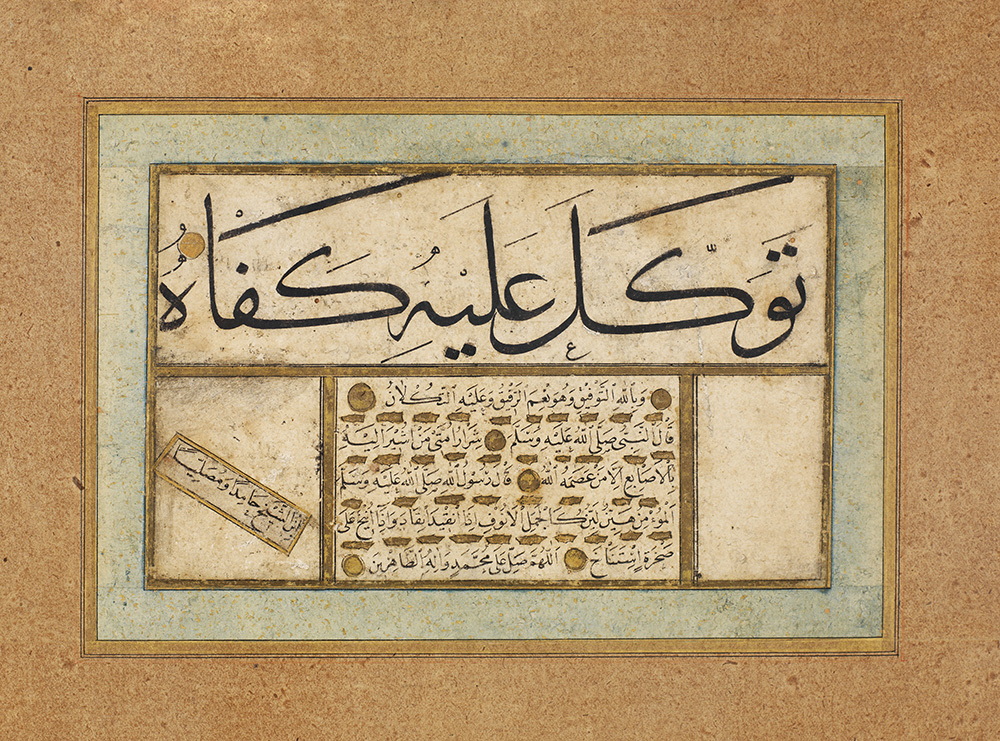 تَوَكَّلَ عَلَيْهِ كَفَاهُ
وَبِاللهِ التَّوْفِيقُ وَهُوَ نِعْمَ الرَّفِيقُ وَعَلَيْهِ التُّكْلَانُ
قَالَ النَّبِيُّ صَلَّى اللهُ عَلَيْهِ وَسَلَّمَ شِرَارُ أُمَّتِي مَنْ أُشِيرَ إِلَيْهِ
بِالْأَصَابِعِ إِلَّا مَنْ عَصَمَهُ اللهُ قَالَ رَسُولُ اللهِ صَلَّى اللهُ عَلَيْهِ وَسَلَّمَ
الْمُؤْمِنُ هَيِّنٌ لَيِّنٌ كَالْجَمَلِ الْأَنُوفِ إِذَا انْقِيدَ انْقَادَ وَإِذَا أُنِيخَ عَلَى
صَخْرَةٍ اِسْتَنَاخَ اللّٰهُمَّ صَلِّ عَلَى مُحَمَّدٍ وَآلِهِ الطَّاهِرِينَ
الشيخ حامدًا ومصليًا